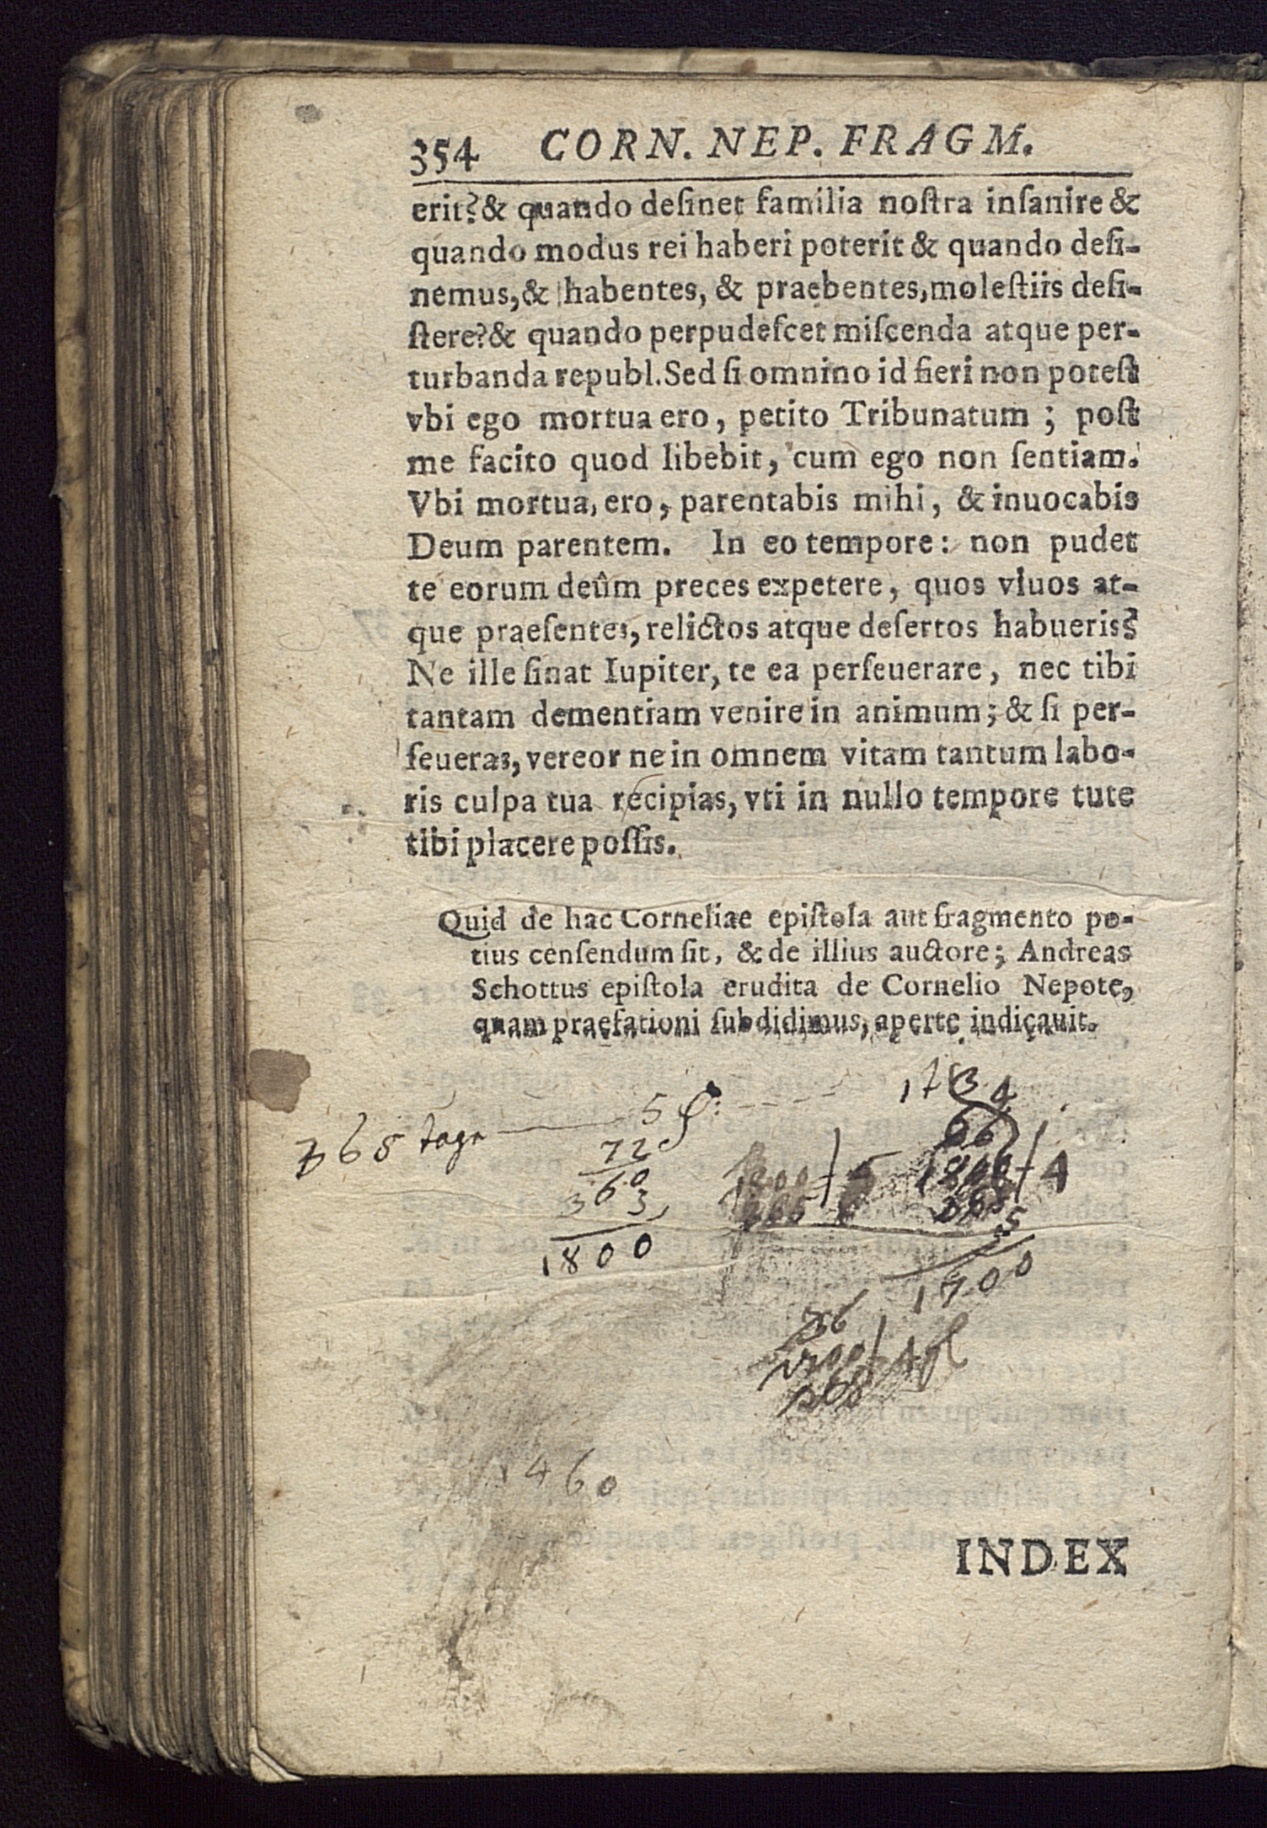 354 CORN. NEP. FRAGM.
erit?& quando deſinet familia noſtra inſanire &
quando modus rei haberi poterit & quando deſi-
nemus,& habentes, & praebentes,moleſtiis deſi-
ſtere?& quando perpudeſcet miſcenda atque per-
turbanda republ.Sed ſi omnino id fieri non poteſt
vbi ego mortua ero, petito Tribunatum ; poſt
me facito quod libebit, cum ego non ſentiam.
Vbi mortua, ero, parentabis mihi, & inuocabis
Deum parentem. In eo tempore: non pudet
te eorum deûm preces expetere, quos viuos at-
que praeſentes, relictos atque deſertos habueris?
Ne ille ſinat Iupiter, te ea perſeuerare, nec tibi
tantam dementiam venire in animum; & ſi per-
ſeueras, vereor ne in omnem vitam tantum labo-
ris culpa tua recipias, vti in nullo tempore tute
tibi placere poſſis.
Quid de hac Corneliae epiſtola aut fragmento po-
tius cenſendum ſit, & de illius auctore; Andreas
Schottus epiſtola erudita de Cornelio Nepote,
quam praefationi ſubdidimus, aperte indicauit.
365 tage 5
72
360
3
1800
1734
66
1800/4
365
1700
1460
INDEX